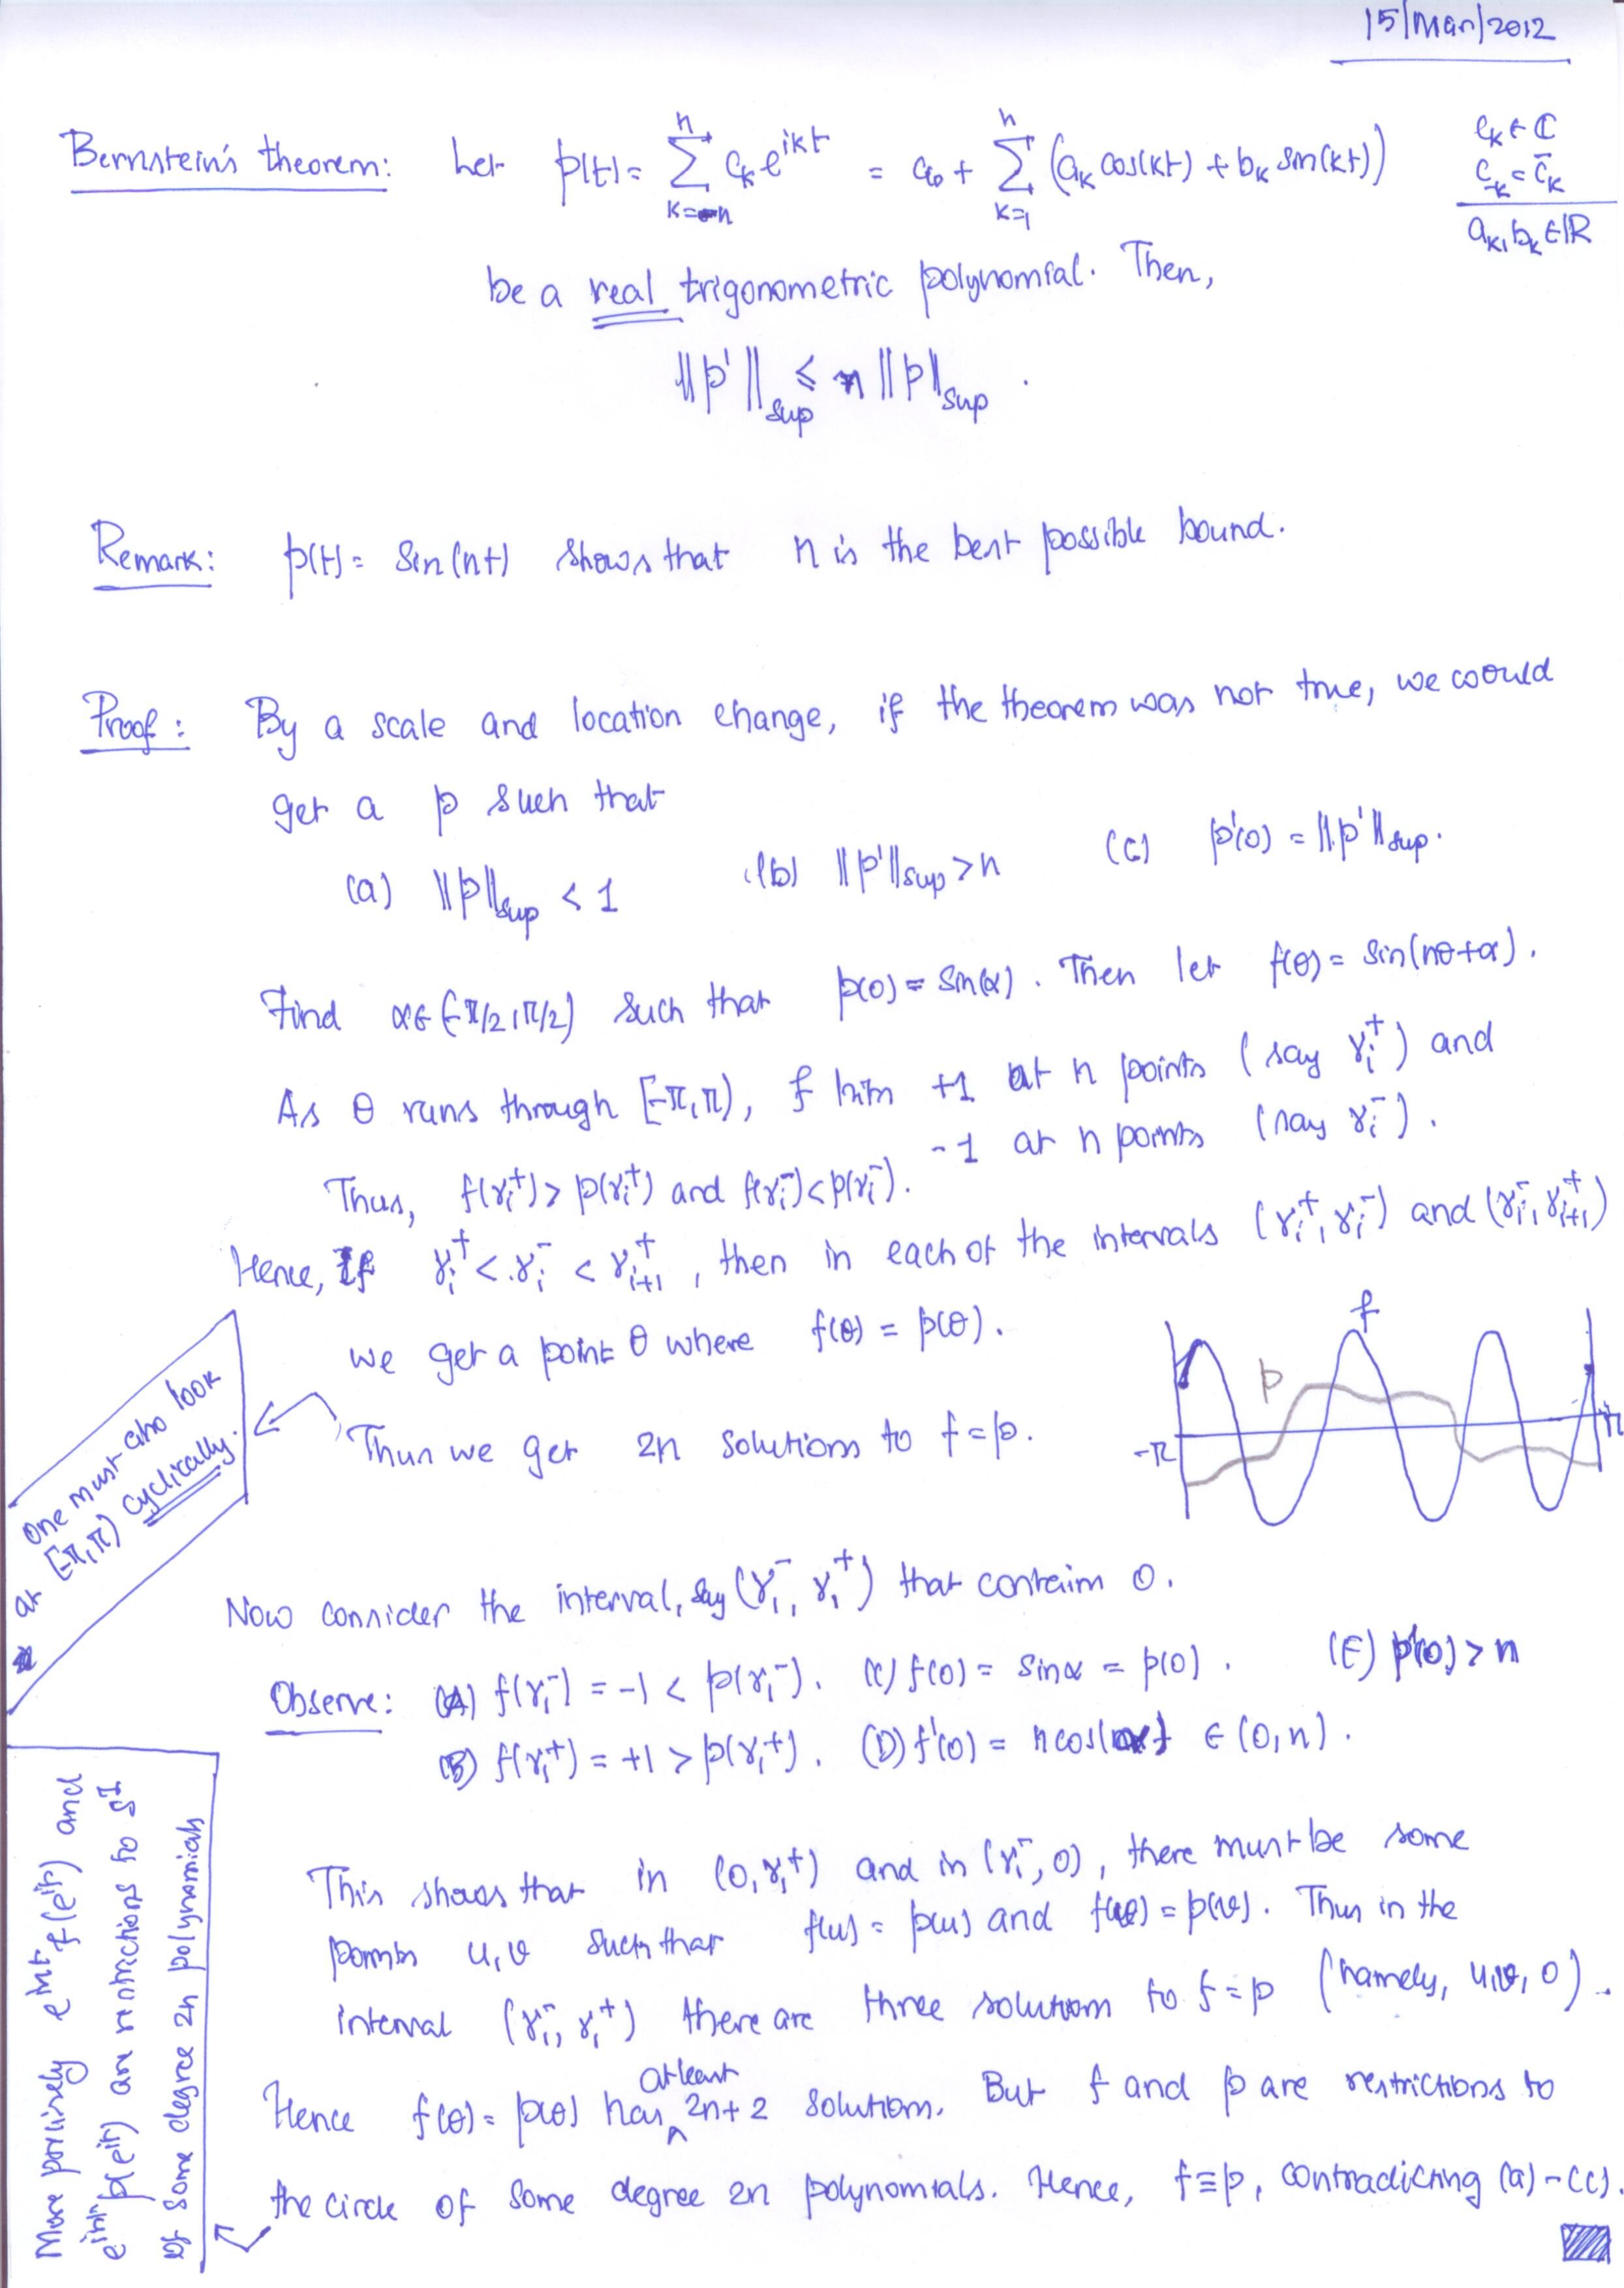 15/Mar/2012
Bernstein's theorem: Let p(t) = ∑_{k=-n}^{n} c_k e^{ikt} = a_0 + ∑_{k=1}^{n} (a_k cos(kt) + b_k sin(kt))
c_k ∈ ℂ
c_{-k} = \bar{c}_k
a_k, b_k ∈ ℝ
be a real trigonometric polynomial. Then,
‖p'‖_sup ≤ n ‖p‖_sup .
Remark: p(t) = sin(nt) shows that n is the best possible bound.
Proof: By a scale and location change, if the theorem was not true, we could
get a p such that
(a) ‖p‖_sup < 1 (b) ‖p'‖_sup > n (c) p'(0) = ‖p'‖_sup.
Find α ∈ (-π/2, π/2) such that p(0) = sin(α). Then let f(θ) = sin(nθ+α).
As θ runs through [-π, π), f hits +1 at n points (say γ_i^+) and
-1 at n points (say γ_i^-).
Thus, f(γ_i^+) > p(γ_i^+) and f(γ_i^-) < p(γ_i^-).
Hence, If γ_i^+ < γ_i^- < γ_{i+1}^+, then in each of the intervals (γ_i^+, γ_i^-) and (γ_i^-, γ_{i+1}^+)
we get a point θ where f(θ) = p(θ).
Thus we get 2n solutions to f=p.
One must also look
at [-π, π) cyclically.
f
p
-π
π
Now consider the interval, say (γ_1^-, γ_1^+) that contains 0.
Observe: (A) f(γ_1^-) = -1 < p(γ_1^-). (C) f(0) = sin α = p(0). (E) p'(0) > n
(B) f(γ_1^+) = +1 > p(γ_1^+). (D) f'(0) = n cos(α) ∈ (0, n).
This shows that in (0, γ_1^+) and in (γ_1^-, 0), there must be some
points u, v such that f(u) = p(u) and f(v) = p(v). Thus in the
interval (γ_1^-, γ_1^+) there are three solutions to f=p (namely, u, v, 0).
Hence f(θ) = p(θ) has at least 2n+2 solutions. But f and p are restrictions to
the circle of some degree 2n polynomials. Hence, f ≡ p, contradicting (a)-(c).
More precisely e^{int} f(e^{it}) and
e^{int} p(e^{it}) are restrictions to S^1
of some degree 2n polynomials